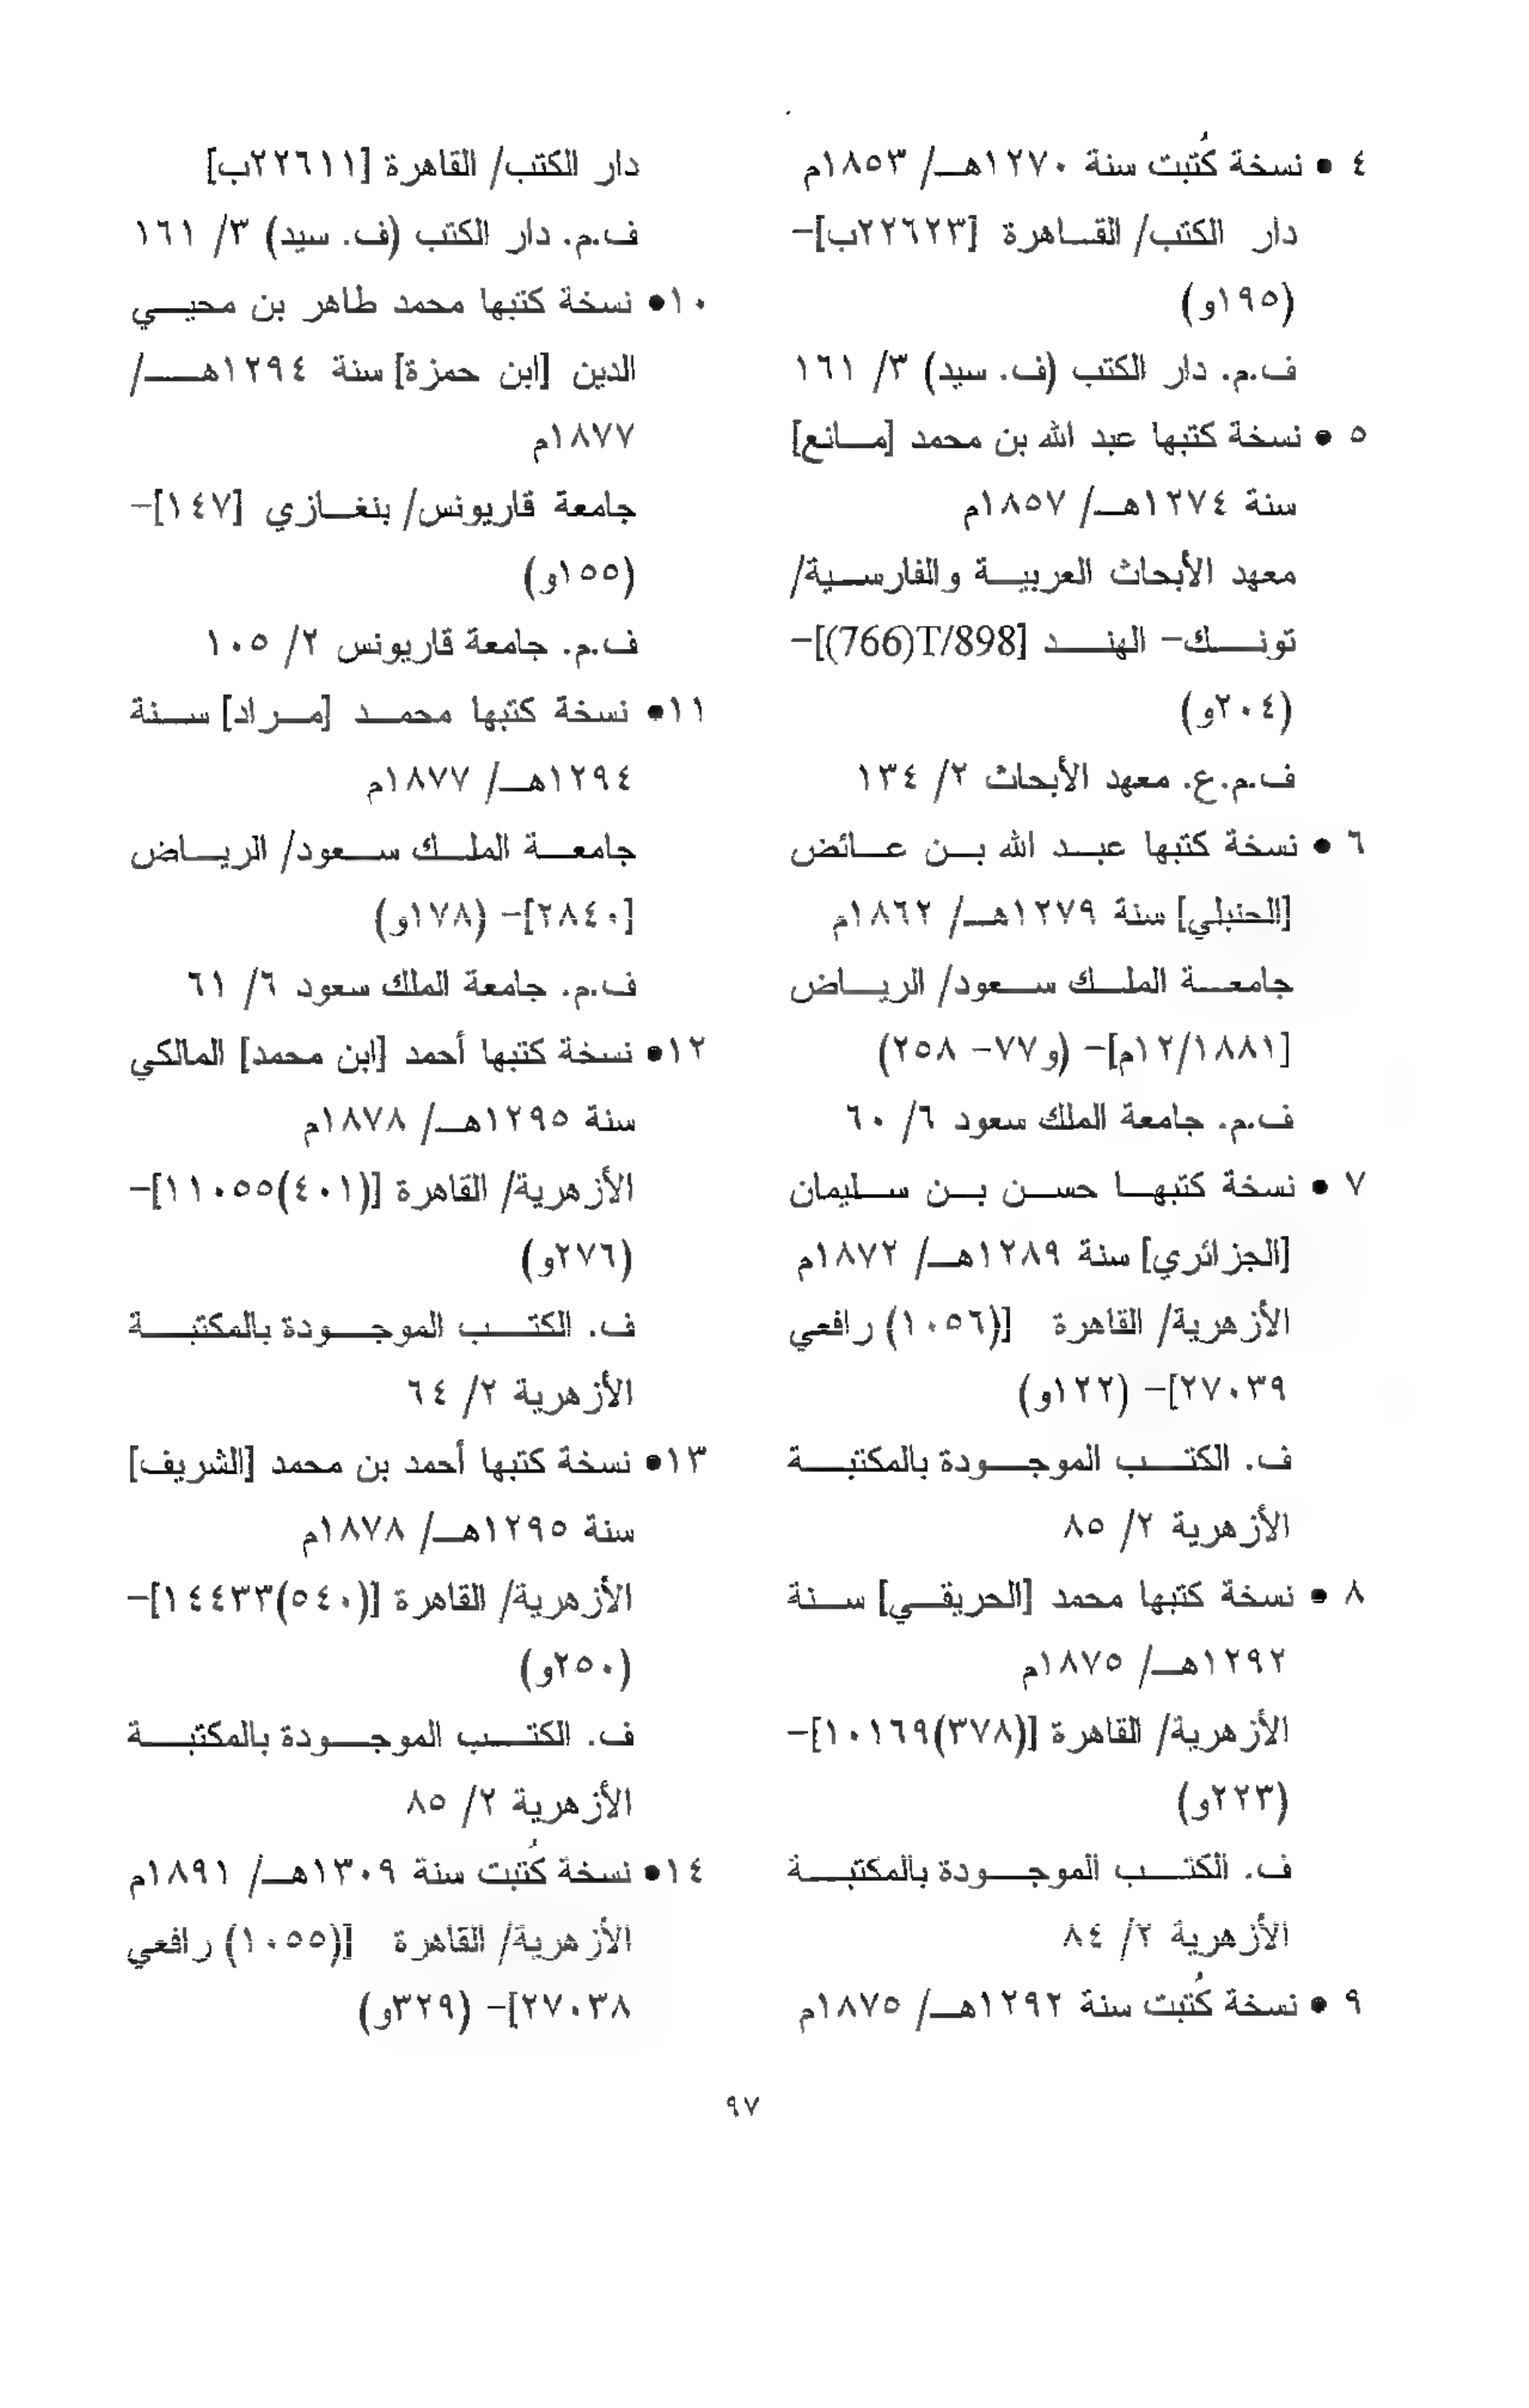 ٤ • نسخة كُتبت سنة ١٢٧٠هـ/ ١٨٥٣م
دار الكتب/ القاهرة [٢٢٦٢٣ب]-
(١٩٥و)
ف.م. دار الكتب (ف. سيد) ٣/ ١٦١
٥ • نسخة كتبها عبد الله بن محمد [مانع]
سنة ١٢٧٤هـ/ ١٨٥٧م
معهد الأبحاث العربية والفارسية/
تونك- الهند [T/898(766)]-
(٢٠٤و)
ف.م.ع. معهد الأبحاث ٢/ ١٣٤
٦ • نسخة كتبها عبد الله بن عائض
[الحنبلي] سنة ١٢٧٩هـ/ ١٨٦٢م
جامعة الملك سعود/ الرياض
[١٢/١٨٨١م]- (و٧٧- ٢٥٨)
ف.م. جامعة الملك سعود ٦/ ٦٠
٧ • نسخة كتبها حسن بن سليمان
[الجزائري] سنة ١٢٨٩هـ/ ١٨٧٢م
الأزهرية/ القاهرة [(١٠٥٦) رافعي
٢٧٠٣٩]- (١٢٢و)
ف. الكتب الموجودة بالمكتبة
الأزهرية ٢/ ٨٥
٨ • نسخة كتبها محمد [الحريقي] سنة
١٢٩٢هـ/ ١٨٧٥م
الأزهرية/ القاهرة [(٣٧٨)١٠١٦٩]-
(٢٢٣و)
ف. الكتب الموجودة بالمكتبة
الأزهرية ٢/ ٨٤
٩ • نسخة كُتبت سنة ١٢٩٢هـ/ ١٨٧٥م
دار الكتب/ القاهرة [٢٢٦١١ب]
ف.م. دار الكتب (ف. سيد) ٣/ ١٦١
١٠• نسخة كتبها محمد طاهر بن محيي
الدين [ابن حمزة] سنة ١٢٩٤هـ/
١٨٧٧م
جامعة قاريونس/ بنغازي [١٤٧]-
(١٥٥و)
ف.م. جامعة قاريونس ٢/ ١٠٥
١١• نسخة كتبها محمد [مراد] سنة
١٢٩٤هـ/ ١٨٧٧م
جامعة الملك سعود/ الرياض
[٢٨٤٠]- (١٧٨و)
ف.م. جامعة الملك سعود ٦/ ٦١
١٢• نسخة كتبها أحمد [ابن محمد] المالكي
سنة ١٢٩٥هـ/ ١٨٧٨م
الأزهرية/ القاهرة [(٤٠١)١١٠٥٥]-
(٢٧٦و)
ف. الكتب الموجودة بالمكتبة
الأزهرية ٢/ ٦٤
١٣• نسخة كتبها أحمد بن محمد [الشريف]
سنة ١٢٩٥هـ/ ١٨٧٨م
الأزهرية/ القاهرة [(٥٤٠)١٤٤٣٣]-
(٢٥٠و)
ف. الكتب الموجودة بالمكتبة
الأزهرية ٢/ ٨٥
١٤• نسخة كُتبت سنة ١٣٠٩هـ/ ١٨٩١م
الأزهرية/ القاهرة [(١٠٥٥) رافعي
٢٧٠٣٨]- (٣٢٩و)
٩٧